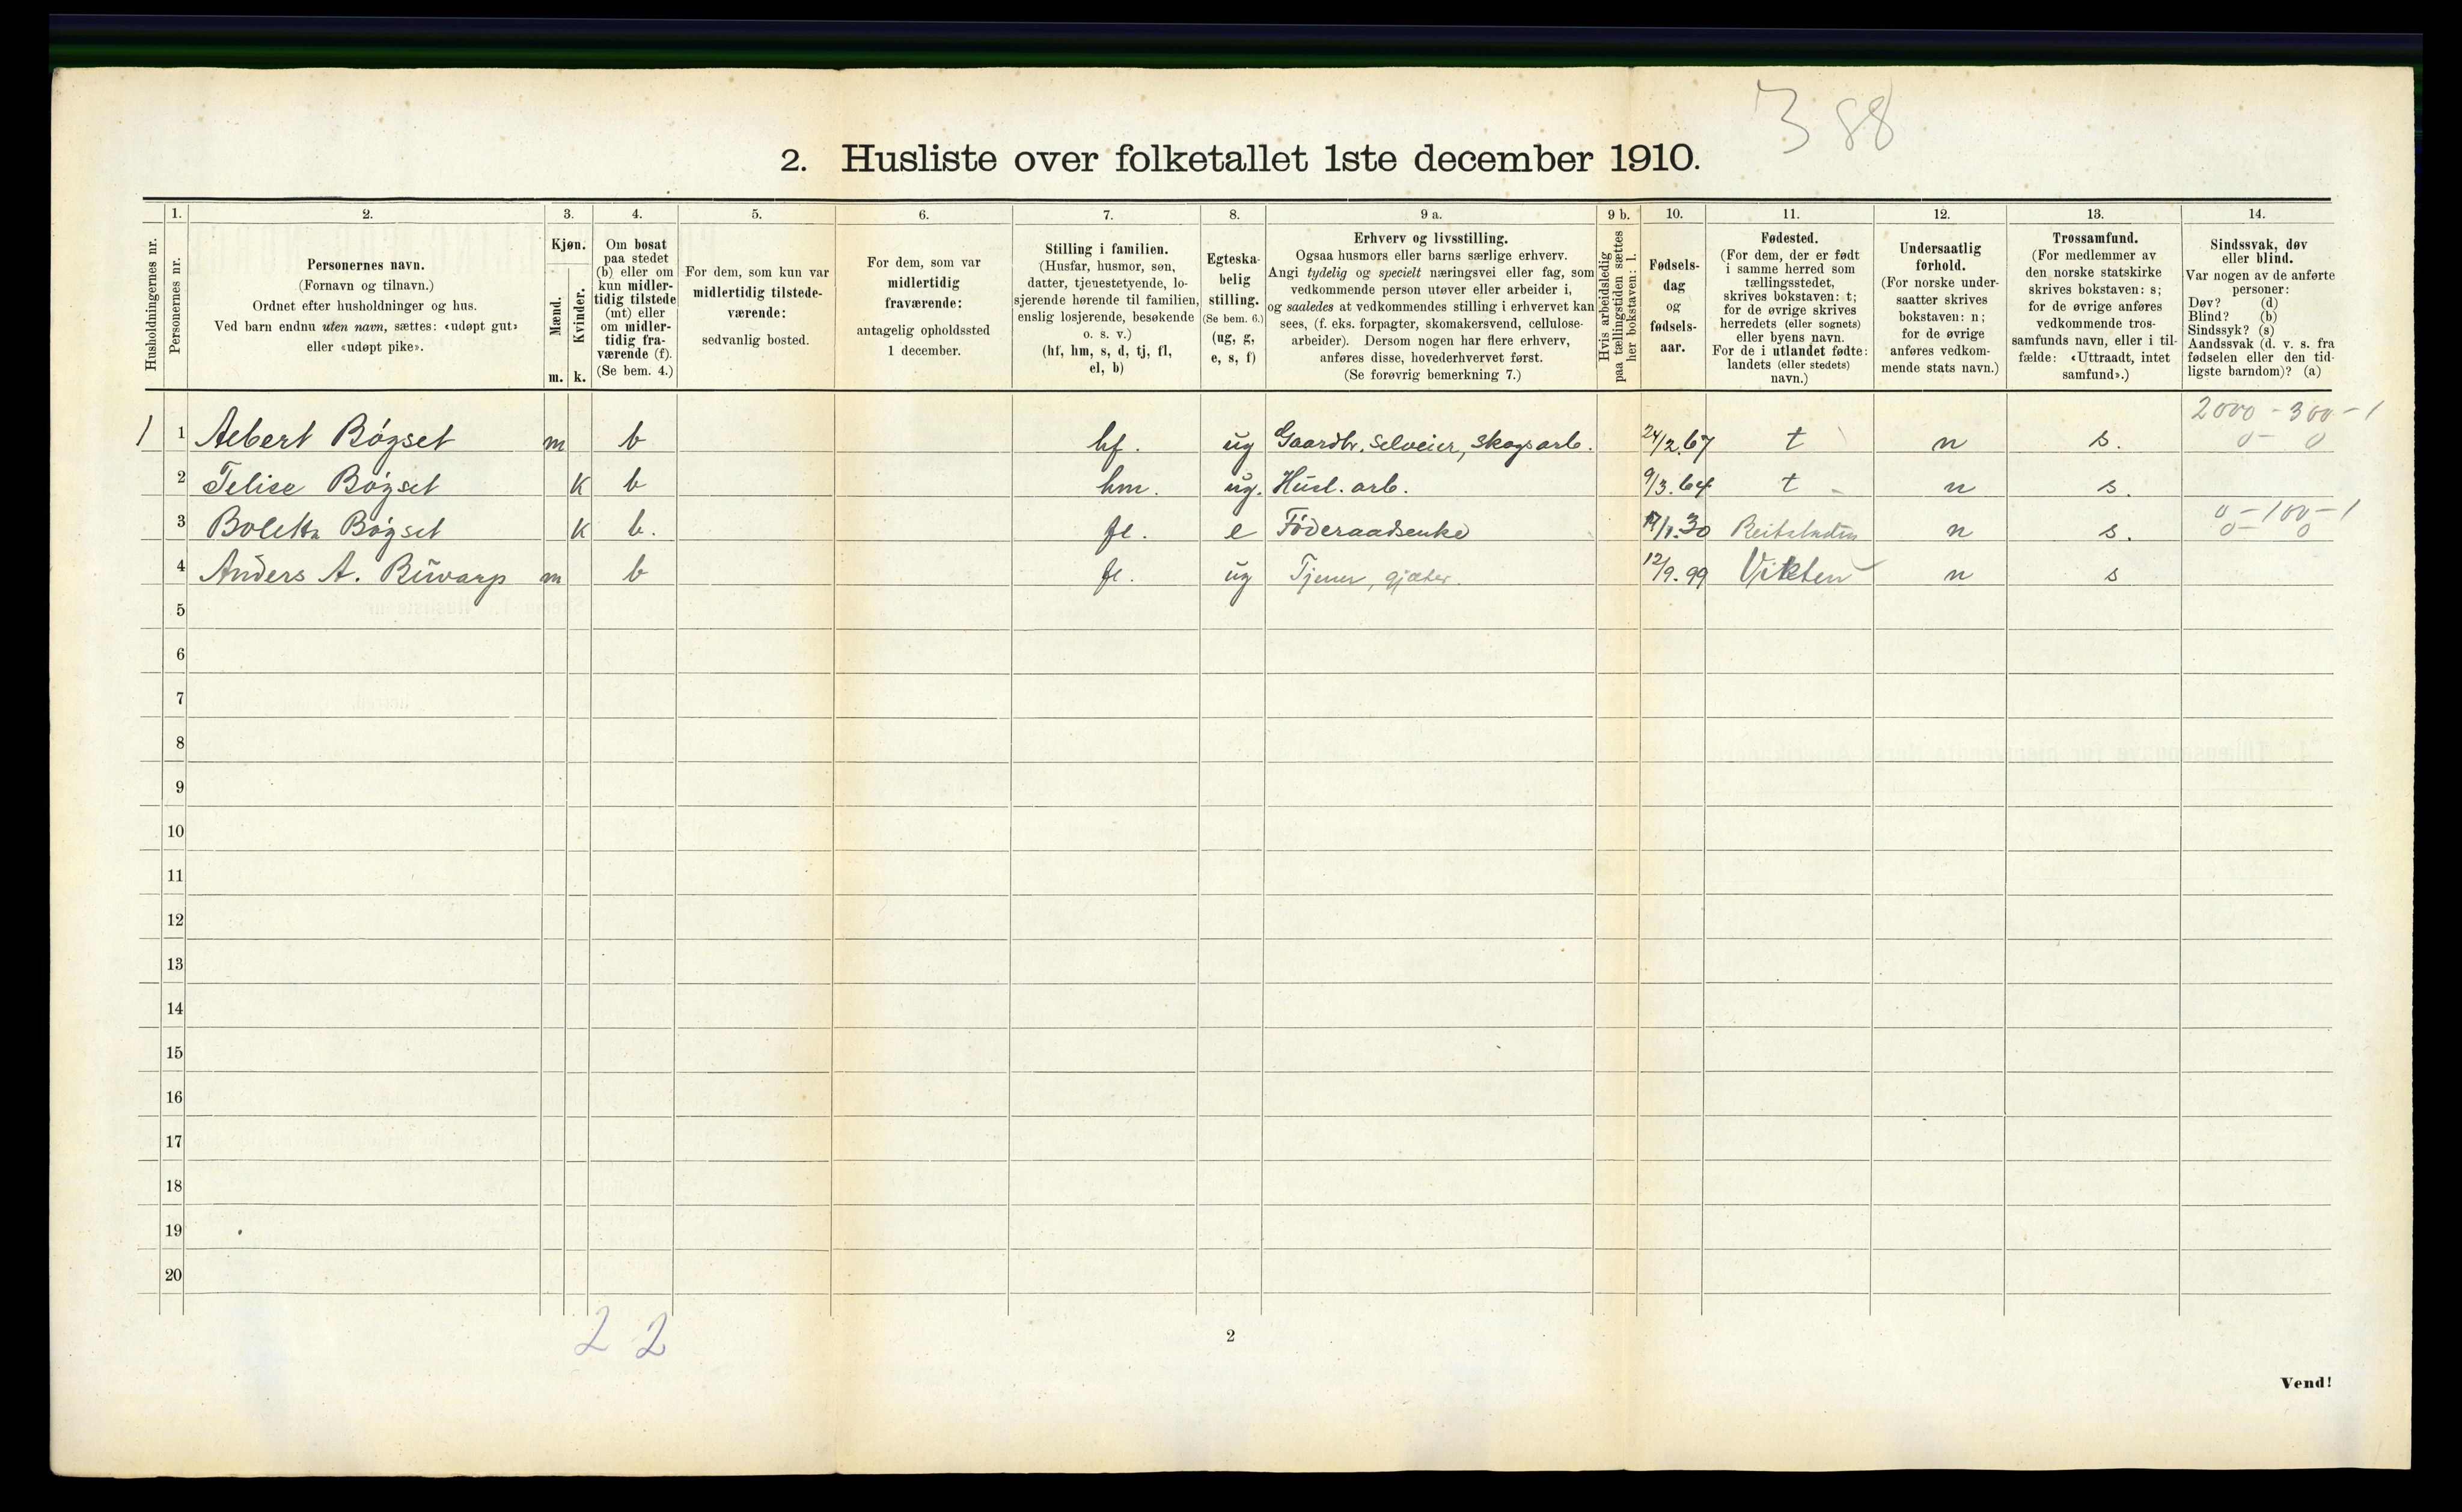 3 88
2. Husliste over folketallet 1ste december 1910.
Husholdningernes nr.
1. Personernes nr.
2. Personernes navn.
(Fornavn og tilnavn.)
Ordnet efter husholdninger og hus.
Ved barn endnu uten navn, sættes: «udøpt gut»
eller «udøpt pike».
3. Kjøn.
Mænd. m.
Kvinder. k.
4. Om bosat
paa stedet
(b) eller om
kun midler-
tidig tilstede
(mt) eller
om midler-
tidig fra-
værende (f).
(Se bem. 4.)
5. For dem, som kun var
midlertidig tilstede-
værende:
sedvanlig bosted.
6. For dem, som var
midlertidig
fraværende:
antagelig opholdssted
1 december.
7. Stilling i familien.
(Husfar, husmor, søn,
datter, tjenestetyende, lo-
sjerende hørende til familien,
enslig losjerende, besøkende
o. s. v.)
(hf, hm, s, d, tj, fl,
el, b)
8. Egteska-
belig
stilling.
(Se bem. 6.)
(ug, g,
e, s, f)
9 a. Erhverv og livsstilling.
Ogsaa husmors eller barns særlige erhverv.
Angi tydelig og specielt næringsvei eller fag, som
vedkommende person utøver eller arbeider i,
og saaledes at vedkommendes stilling i erhvervet kan
sees, (f. eks. forpagter, skomakersvend, cellulose-
arbeider). Dersom nogen har flere erhverv,
anføres disse, hovederhvervet først.
(Se forøvrig bemerkning 7.)
9 b. Hvis arbeidsledig
paa tællingstiden sættes
her bokstaven: l.
10. Fødsels-
dag
og
fødsels-
aar.
11. Fødested.
(For dem, der er født
i samme herred som
tællingsstedet,
skrives bokstaven: t;
for de øvrige skrives
herredets (eller sognets)
eller byens navn.
For de i utlandet fødte:
landets (eller stedets)
navn.)
12. Undersaatlig
forhold.
(For norske under-
saatter skrives
bokstaven: n;
for de øvrige
anføres vedkom-
mende stats navn.)
13. Trossamfund.
(For medlemmer av
den norske statskirke
skrives bokstaven: s;
for de øvrige anføres
vedkommende tros-
samfunds navn, eller i til-
fælde: «Uttraadt, intet
samfund».)
14. Sindssvak, døv
eller blind.
Var nogen av de anførte
personer:
Døv? (d)
Blind? (b)
Sindssyk? (s)
Aandssvak (d. v. s. fra
fødselen eller den tid-
ligste barndom)? (a)
2000 - 300 - 1
1 1 Aebert Bøgset m b hf. ug Gaardbr. selveier, skogsarb. 24/2.67 t n s. 0 - 0
2 Felice Bøgset k b hm. ug. Husl. arb. 9/3.64 t n s.
0 - 100 - 1
3 Boletta Bøgset k b. fl. e Føderaadsenke 30 n s. 0 - 0
4 Anders A. Buvarp m b fl. ug Tjener, gjæter. 12/9.99 Vikten n s
5
6
7
8
9
10
11
12
13
14
15
16
17
18
19
20
2 2
2
Vend!